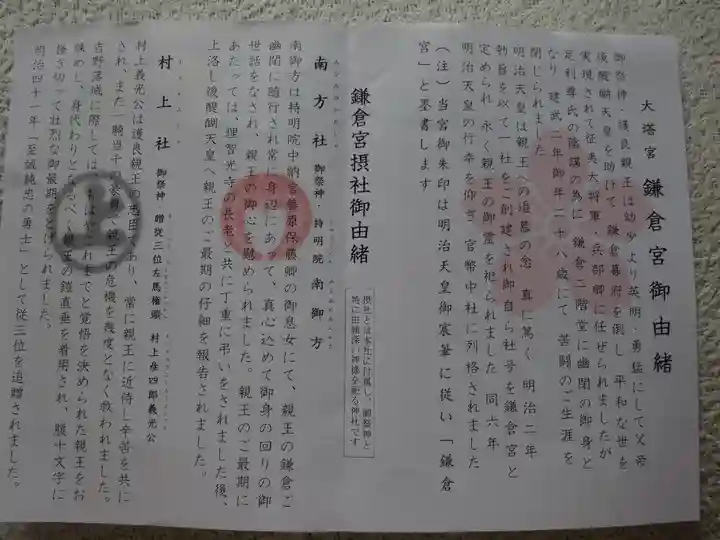 大塔宮 鎌倉宮御由緒
御祭神・護良親王は幼少より英明・勇猛にして父帝
後醍醐天皇を助けて 鎌倉幕府を倒し 平和な世を
実現されて征夷大将軍・兵部卿に任ぜられましたが
足利尊氏の陰謀の為に 鎌倉二階堂に幽閉の御身と
なり 建武二年御年二十八歳にて 苦闘のご生涯を
閉じられました
明治天皇は親王への追慕の念 真に篤く 明治二年
勅旨を以て一社をご創建され御自ら社号を鎌倉宮と
定められ 永く親王の御霊を祀られました 同六年
明治天皇の行幸を仰ぎ 官幣中社に列格されました
(注)当宮御朱印は明治天皇御宸筆に従い「鎌倉
宮」と墨書します
鎌倉宮摂社御由緒
摂社とは本社に付属し、御祭神と
特に由緒深い神様を祀る神社です
南方社 御祭神・持明院 南御方
南御方は持明院中納言藤原保藤卿の御息女にて、親王の鎌倉ご
幽閉に随行され常に身辺にあって、真心込めて御身の回りの御
世話をなされ、親王の御心を慰められました。親王のご最期に
あたっては、理智光寺の長老と共に丁重に弔いをされました後、
上洛し後醍醐天皇へ親王のご最期の仔細を報告されました。
村上社 御祭神 贈従三位左馬権頭 村上彦四郎義光公
村上義光公は護良親王の忠臣であり、常に親王に近侍し辛苦を共に
され、また一騎当千の豪勇で親王の危機を幾度となく救われました。
吉野落城に際しては、もはやこれまでと覚悟を決められた親王をお
諌めし、身代わりとなるべく親王の鎧直垂を着用され、腹十文字に
掻き切って壮烈な御最期をとげられました。
明治四十一年「至誠純忠の勇士」として従三位を追贈されました。